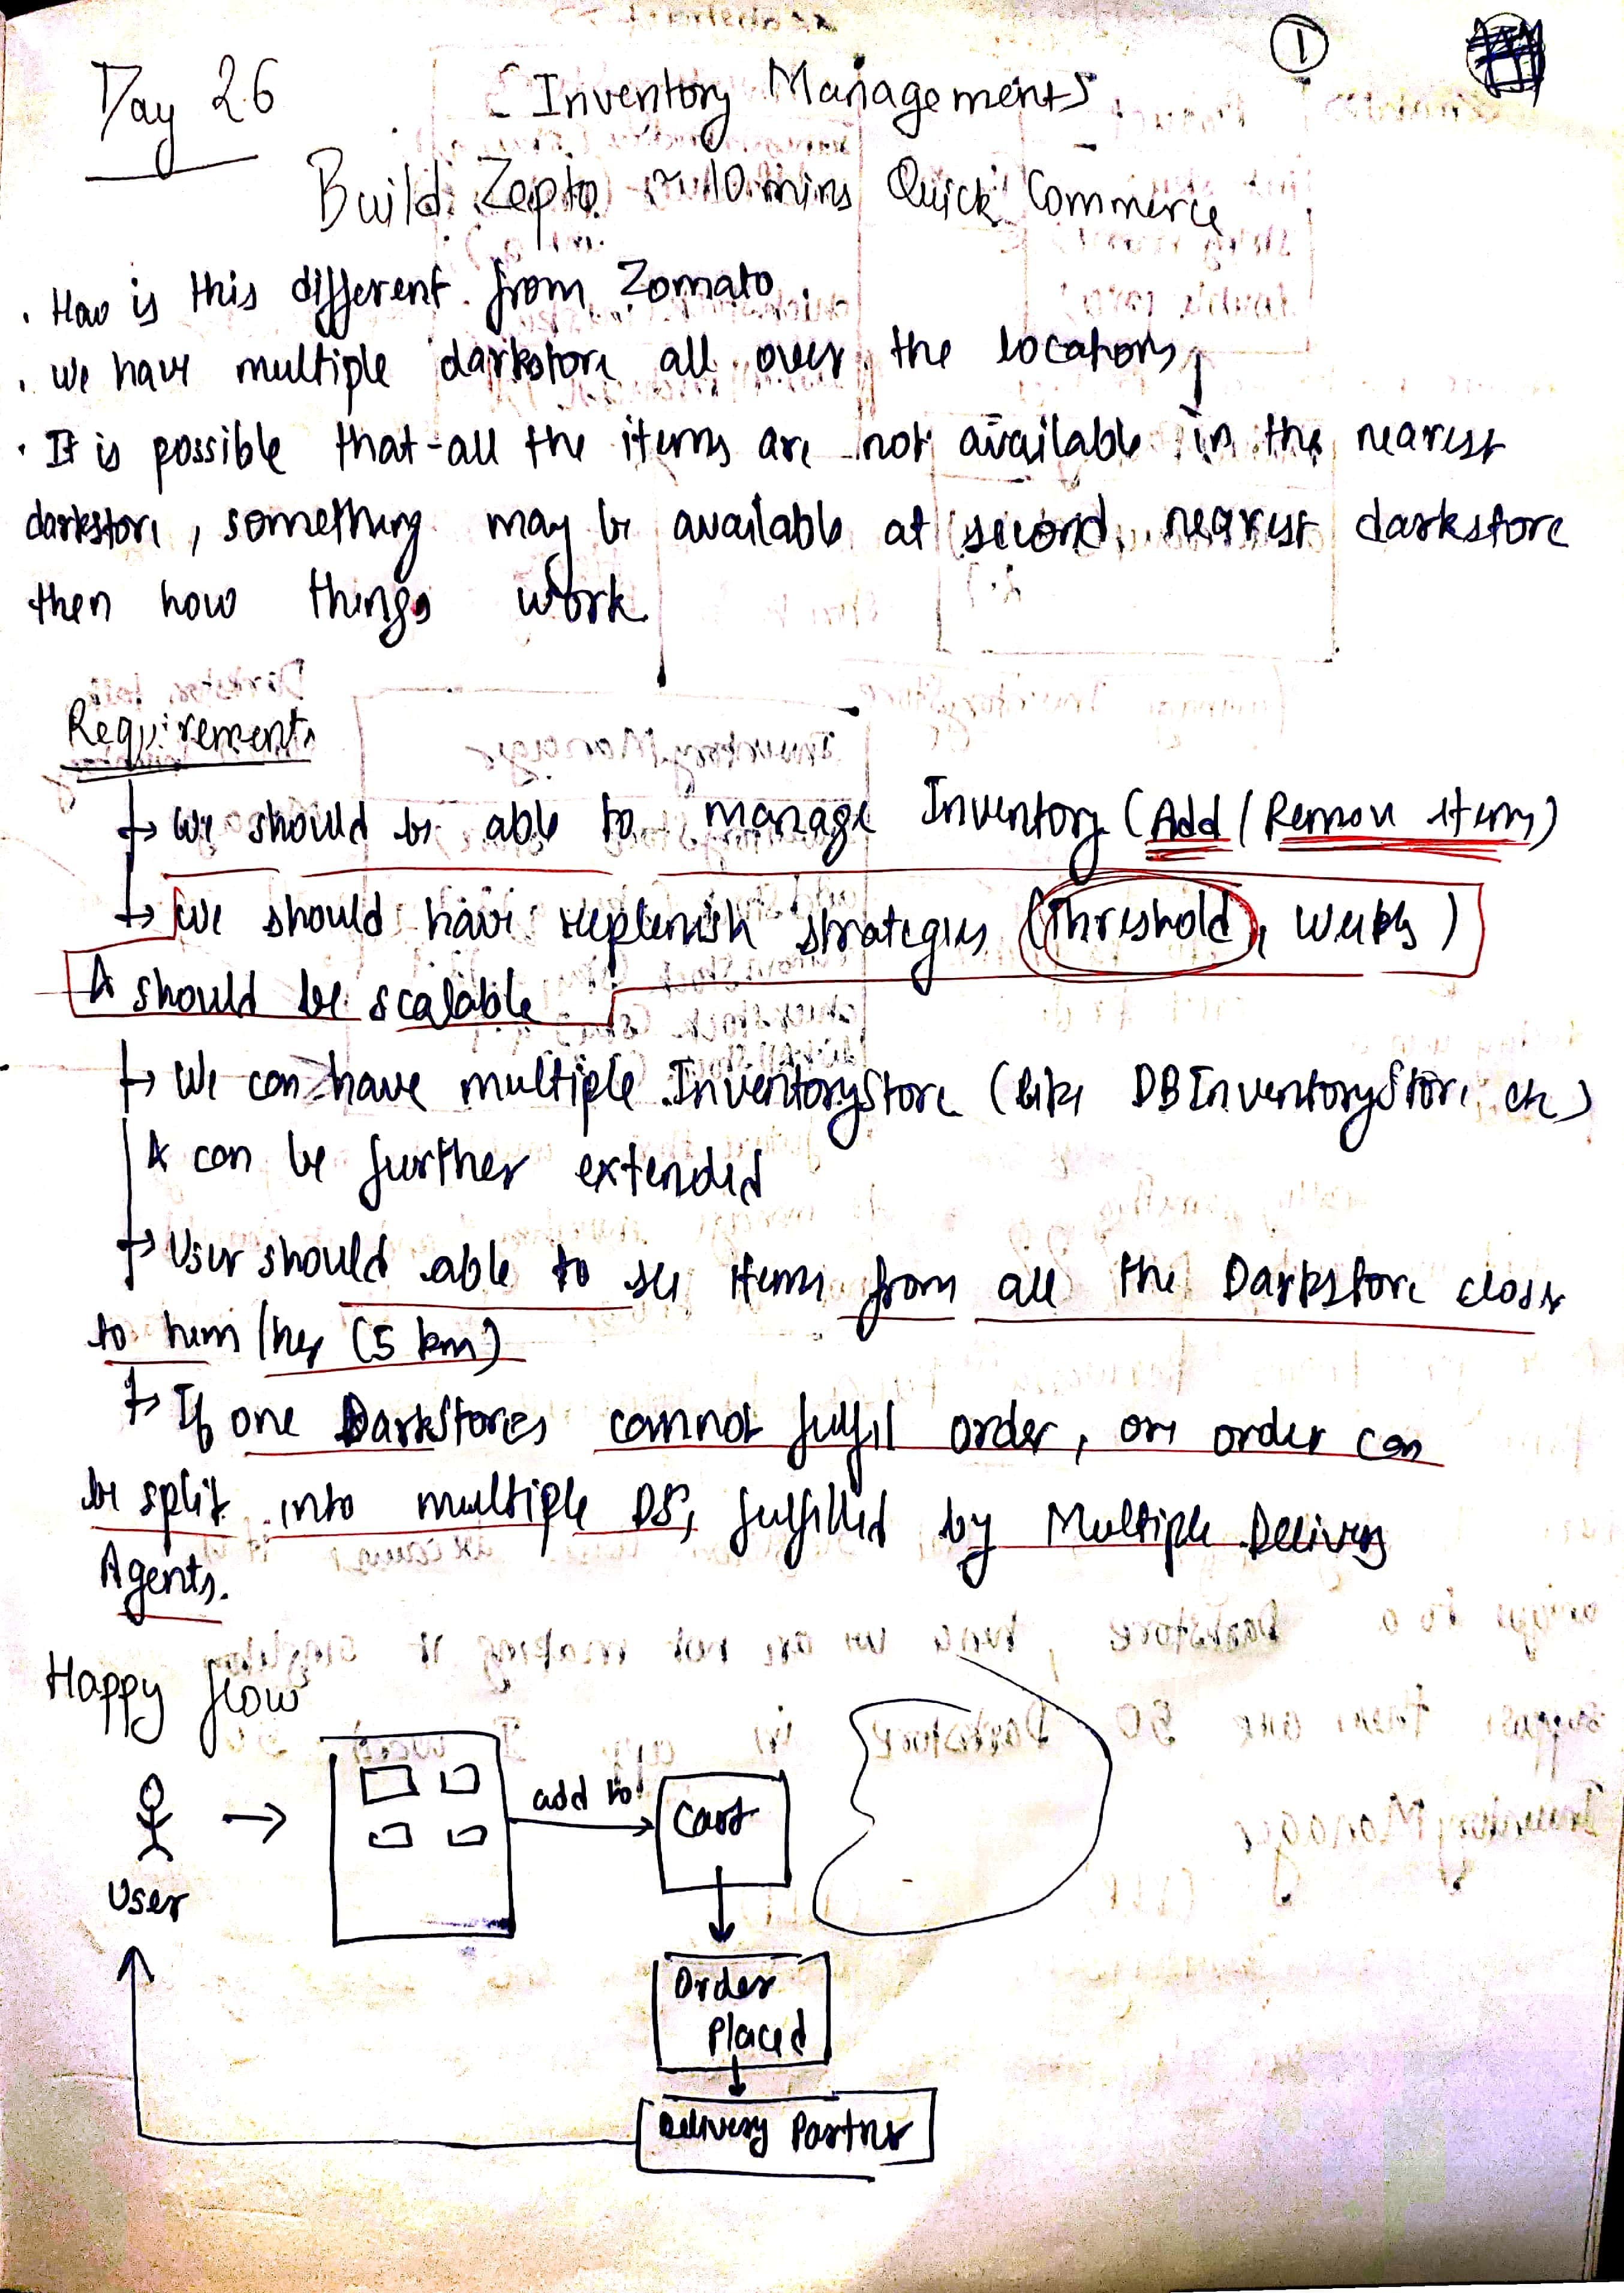 1
Day 26
[Inventory Managements
Build Zepto ~ 10 mins Quick Commerce
. How is this different from Zomato.
. We have multiple darkstore all over the locations,
. It is possible that all the items are not available in the nearest
darkstore, something may be available at second nearest darkstore
then how things work
Requirements
→ We should be able to manage Inventory (Add / Remove items)
→ We should have replenish strategies (Threshold, Weekly)
& should be scalable
→ We can have multiple InventoryStore (like DBInventoryStore etc)
& can be further extended
→ User should able to see items from all the Darkstore close
to him/her (5 km)
→ If one DarkStores cannot fulfil order, one order can
be split into multiple DS, fulfilled by Multiple Delivery
Agents.
Happy flow
User
add to
Cart
Order
Placed
Delivery Partner